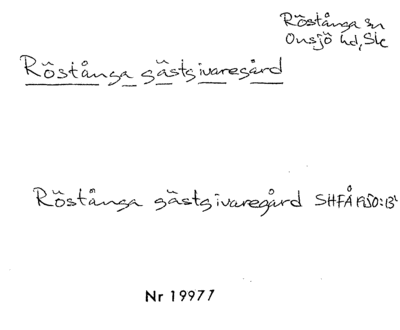 Röstånga sn
Onsjö hd, Sk
Röstånga gästgivaregård
Röstånga gästgivaregård SHFÅ
Nr 19977